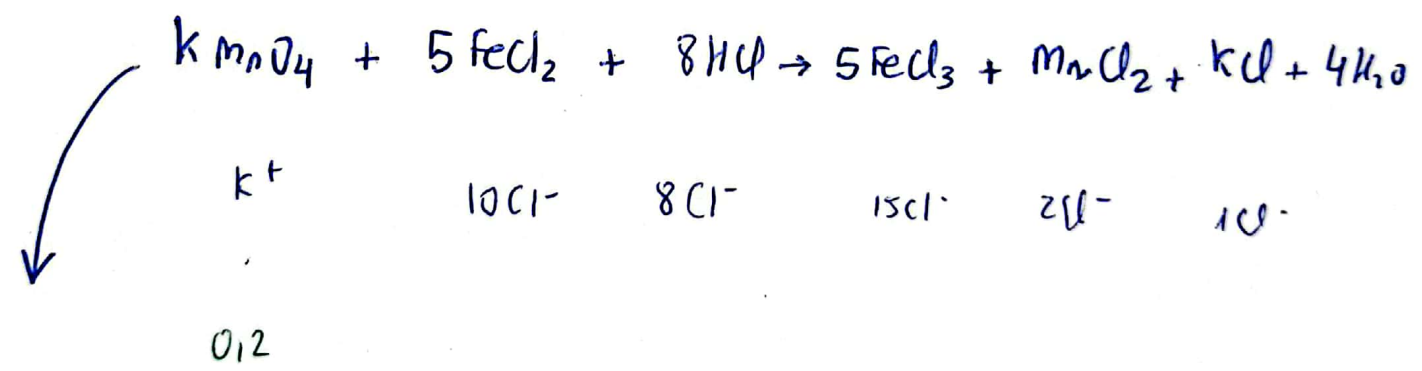 KMnO₄ + 5 FeCl₂ + 8HCl → 5 FeCl₃ + MnCl₂ + KCl + 4H₂O
K⁺ 10Cl⁻ 8Cl⁻ 15Cl⁻ 2Cl⁻ 1Cl⁻
0,2